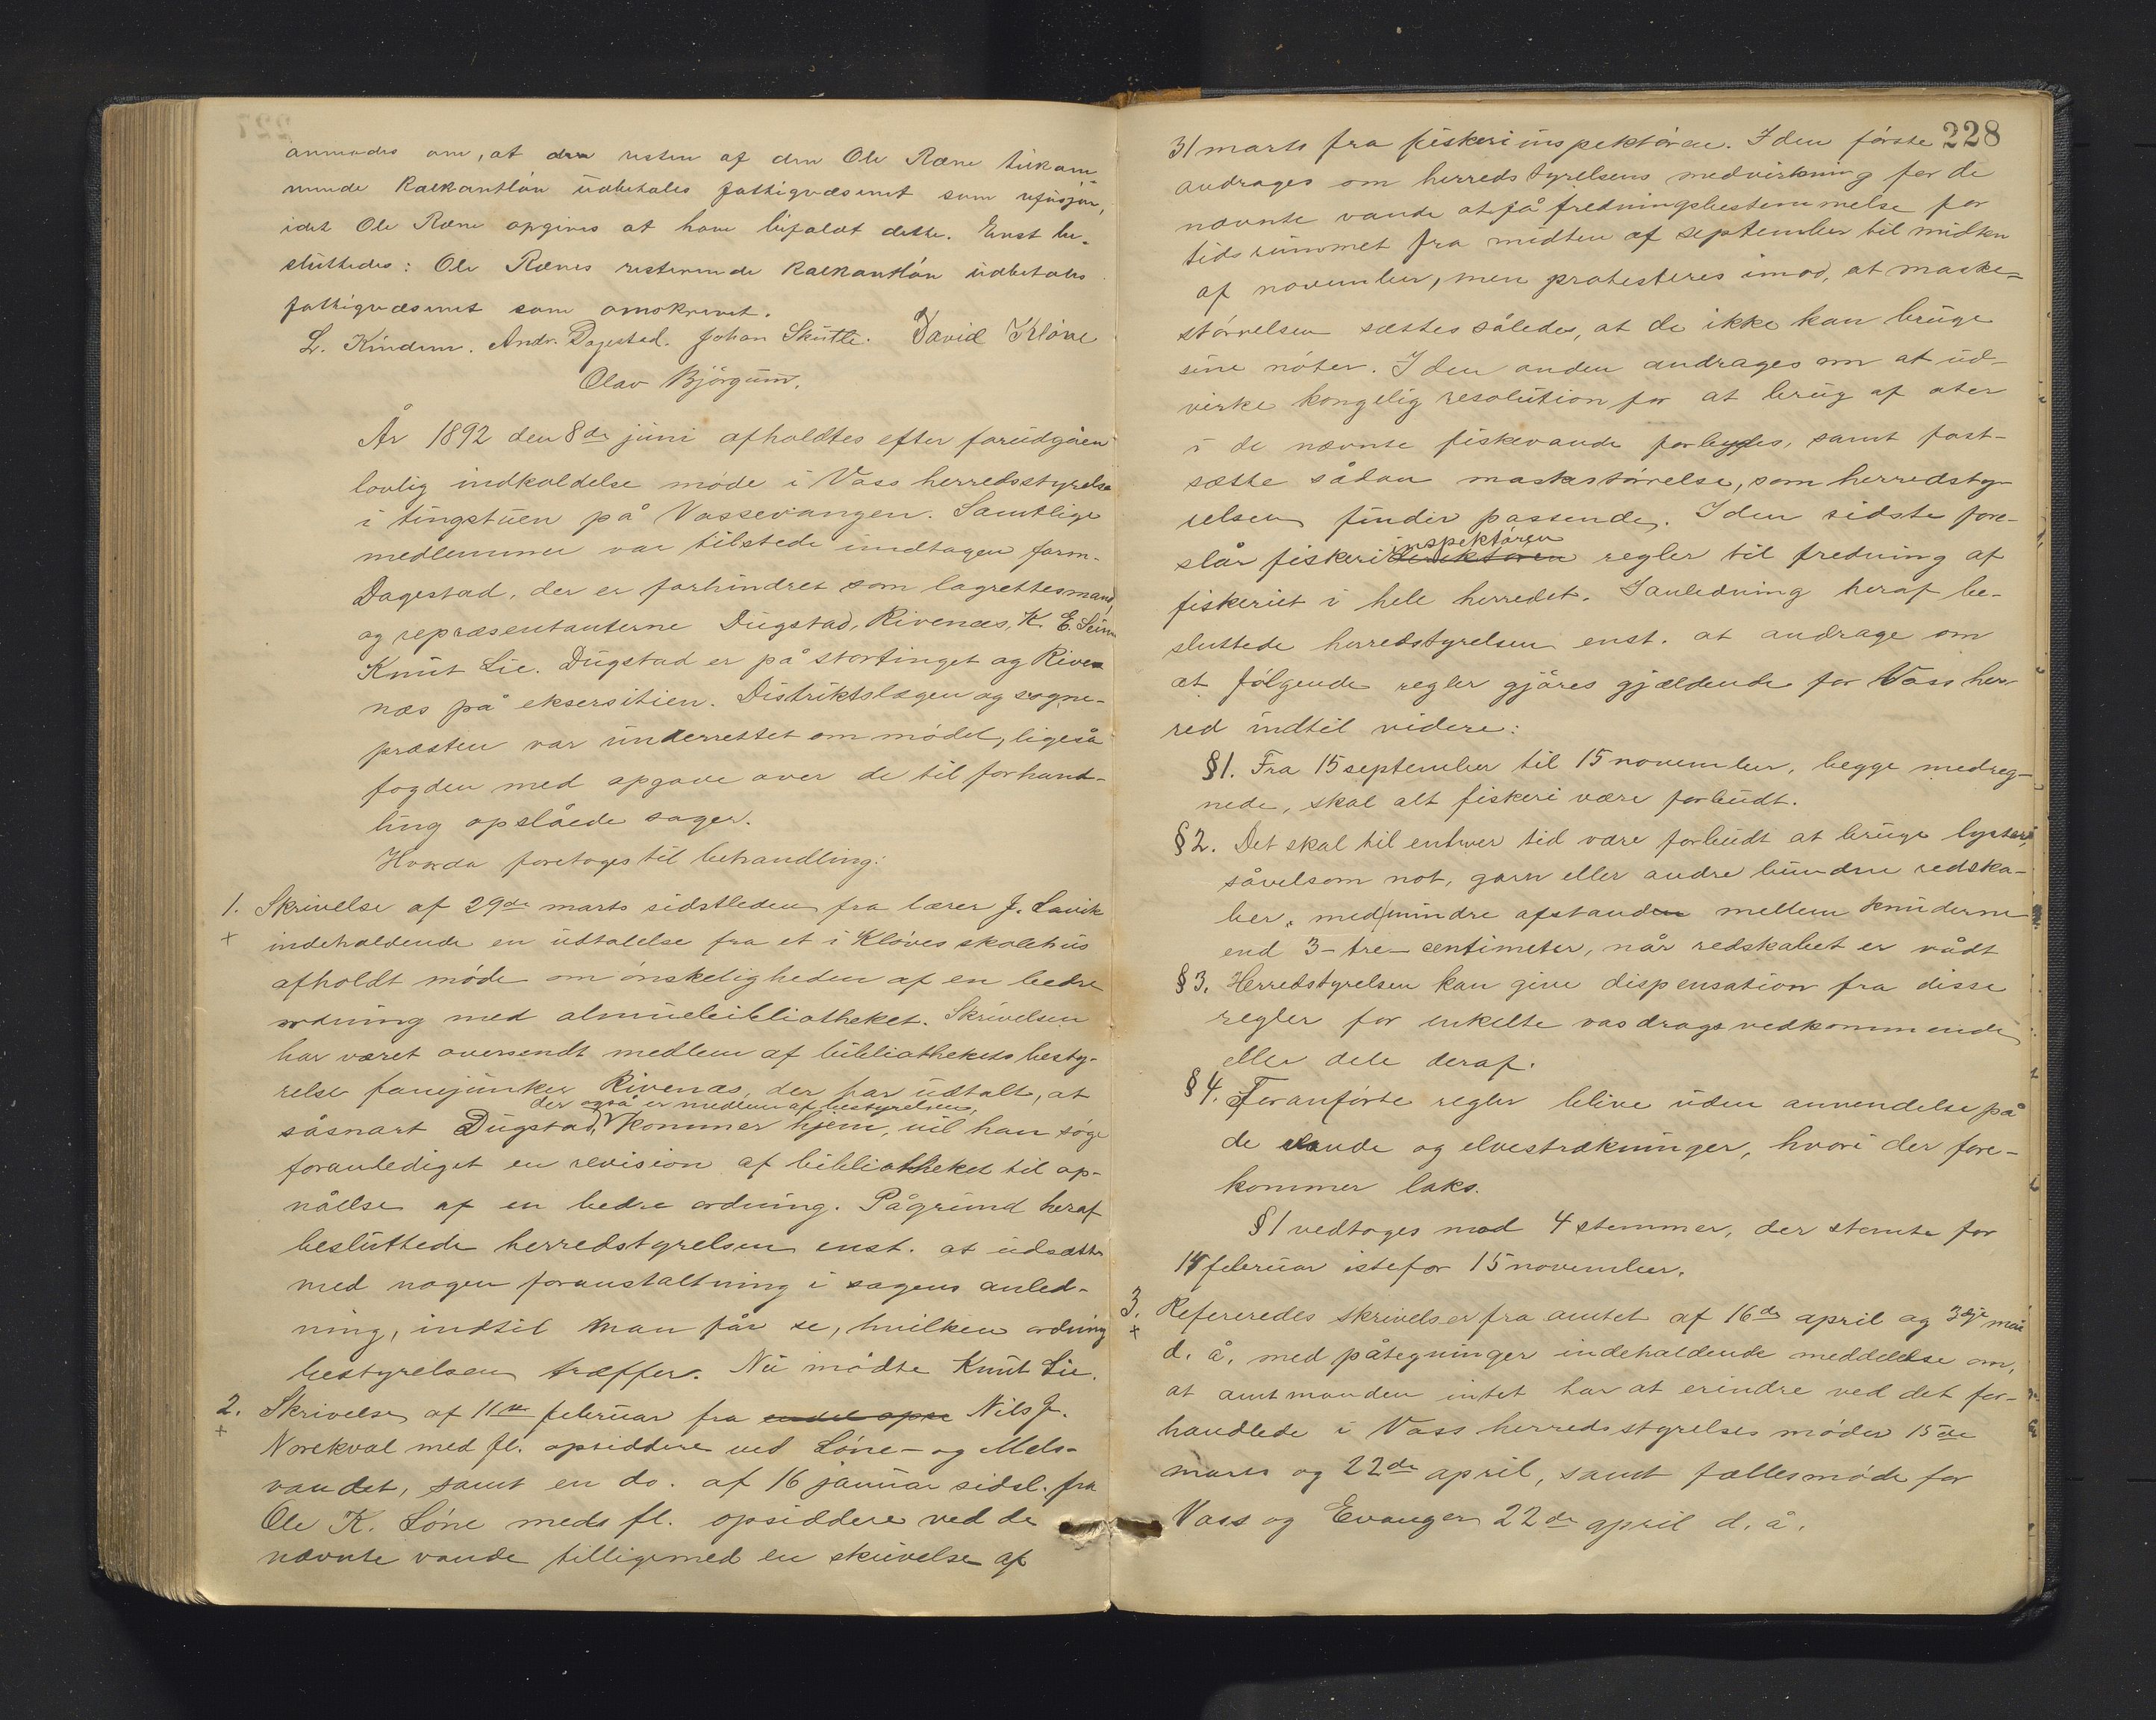 anmodes om, at den resten af den Ole Ræne tilkom-
mende kalkantløn udbetales fattigvæsenet som refusjon,
idet Ole Ræne opgives at have bifaldt dette. Enst be-
sluttedes: Ole Rænes resterende kalkantløn udbetales
fattigvæsenet som omskrevet.
L. Kindem. Andr. Dagestad. Johan Skutle. David Kløve
Olav Bjørgum.
År 1892 den 8de juni afholdtes efter forudgåen
lovlig indkaldelse møde i Vass herredsstyrelse
i tingstuen på Vassevangen. Samtlige
medlemmer var tilstede undtagen form.
Dagestad, der er forhindret som lagrettesmand,
og repræsentanterne Dugstad, Rivenæs, K. E. Seim
Knut Lie. Dugstad er på stortinget og Rive
næs på eksersitien. Distriktslægen og sogne-
præsten var underrettet om mødet, ligeså
fogden med opgave over de til forhand-
ling opslåede sager.
Hvorda foretoges til behandling:
1. Skrivelse af 29de marts sidstleden fra lærer J. Lavik
+ indeholdende en udtalelse fra et i Kløves skolehus
afholdt møde om ønskeligheden af en bedre
ordning med almuebibliotheket. Skrivelsen
har været oversendt medlem af bibliothekets besty-
relse fanejunker Rivenæs, der har udtalt, at
der også er medlem af bestyrelsen,
såsnart Dugstad, kommer hjem, vil han søge
foranlediget en revision af bibliotheket til op-
nåelse af en bedre ordning. På grund heraf
besluttede herredstyrelsen enst. at udsætte
med nogen foranstaltning i sagens anled-
ning, indtil man får se, hvilken ordning
bestyrelsen træffer. Nu mødte Knut Lie.
2. Skrivelse af 11te februar fra Nils J.
+ Norekval med fl. opsiddere ved Løne- og Mels-
vandet, samt en do. af 16 januar sidstl. fra
Ole K. Løne med fl. opsiddere ved de
nævnte vande tilligemed en skrivelse af
228
31 marts fra fiskeriinspektøren. I den første
andrages om herredstyrelsens medvirkning for de
nævnte vande at få fredningsbestemmelse for
tidsrummet fra midten af september til midten
af november, men protesteres imod, at maske-
størrelsen sættes således, at de ikke kan bruge
sine nøter. I den anden andrages om at ud-
virke kongelig resolution for at brug af oter
i de nævnte fiskevande forbydes, samt fast-
sætte sådan maskestørrelse, som herredsty-
relsen finder passende. I den sidste fore-
inspektøren
slår fiskeridirektøren regler til fredning af
fiskeriet i hele herredet. I anledning heraf be-
sluttede herredstyrelsen enst. at andrage om
at følgende regler gjøres gjældende for Vass her-
red indtil videre:
§1. Fra 15 september til 15 november, begge medreg-
nede, skal alt fiskeri være forbudt.
§2. Det skal til enhver tid være forbudt at bruge lyster,
såvelsom not, garn eller andre bundne redska-
ber, med mindre afstanden mellem knuderne
end 3 - tre - centimeter, når redskabet er vådt
§3. Herredstyrelsen kan give dispensation fra disse
regler for enkelte vasdrags vedkommende
eller dele deraf.
§4. Foranførte regler blive uden anvendelse på
de vande og elvestrækninger, hvori der fore-
kommer laks.
§1 vedtoges mod 4 stemmer, der stemte for
14 februar istefor 15 november.
3. Refereredes skrivelser fra amtet af 16de april og 3dje mai
+ d. å. med påtegninger indeholdende meddelelse om,
at amtmanden intet har at erindre ved det for-
handlede i Vass herredsstyrelses møder 15de
marts og 22de april, samt fællesmøde for
Vass og Evanger 22de april d. å.